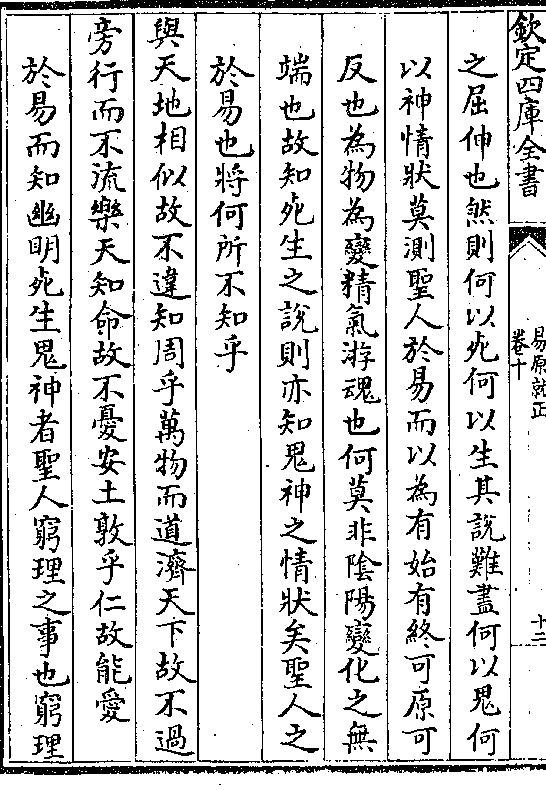 欽定四庫全書
易原就正
卷十
十二
之屈伸也然則何以死何以生其說難盡何以鬼何
以神情狀莫測聖人於易而以為有始有終可原可
反也為物為變精氣游魂也何莫非陰陽變化之無
端也故知死生之說則亦知鬼神之情狀矣聖人之
於易也將何所不知乎
與天地相似故不違知周乎萬物而道濟天下故不過
旁行而不流樂天知命故不憂安土敦乎仁故能愛
於易而知幽明死生鬼神者聖人窮理之事也窮理